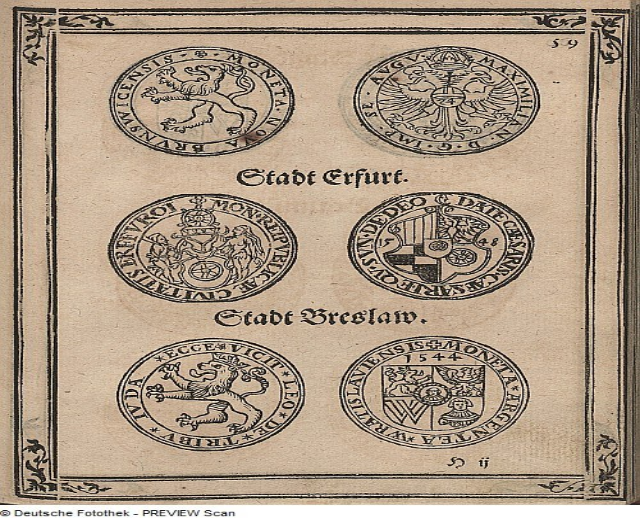 59
MONETA NOVA BRVNSWICENSIS
MAXIMILIEN D G IMP AVGV
24
Stadt Erfurt.
MON REIPVBLICÆ CIVITATIS ERFFVRDI
DATE CÆSARIS CÆSARI EQVÆ SVN DE DEO
15 48
Stadt Breslaw.
ECCE VICIT LEO DE TRIBV IVDA
MONETA ARGENTEA WRATISLAVIENSIS
1544
W
H ij
© Deutsche Fotothek - PREVIEW Scan